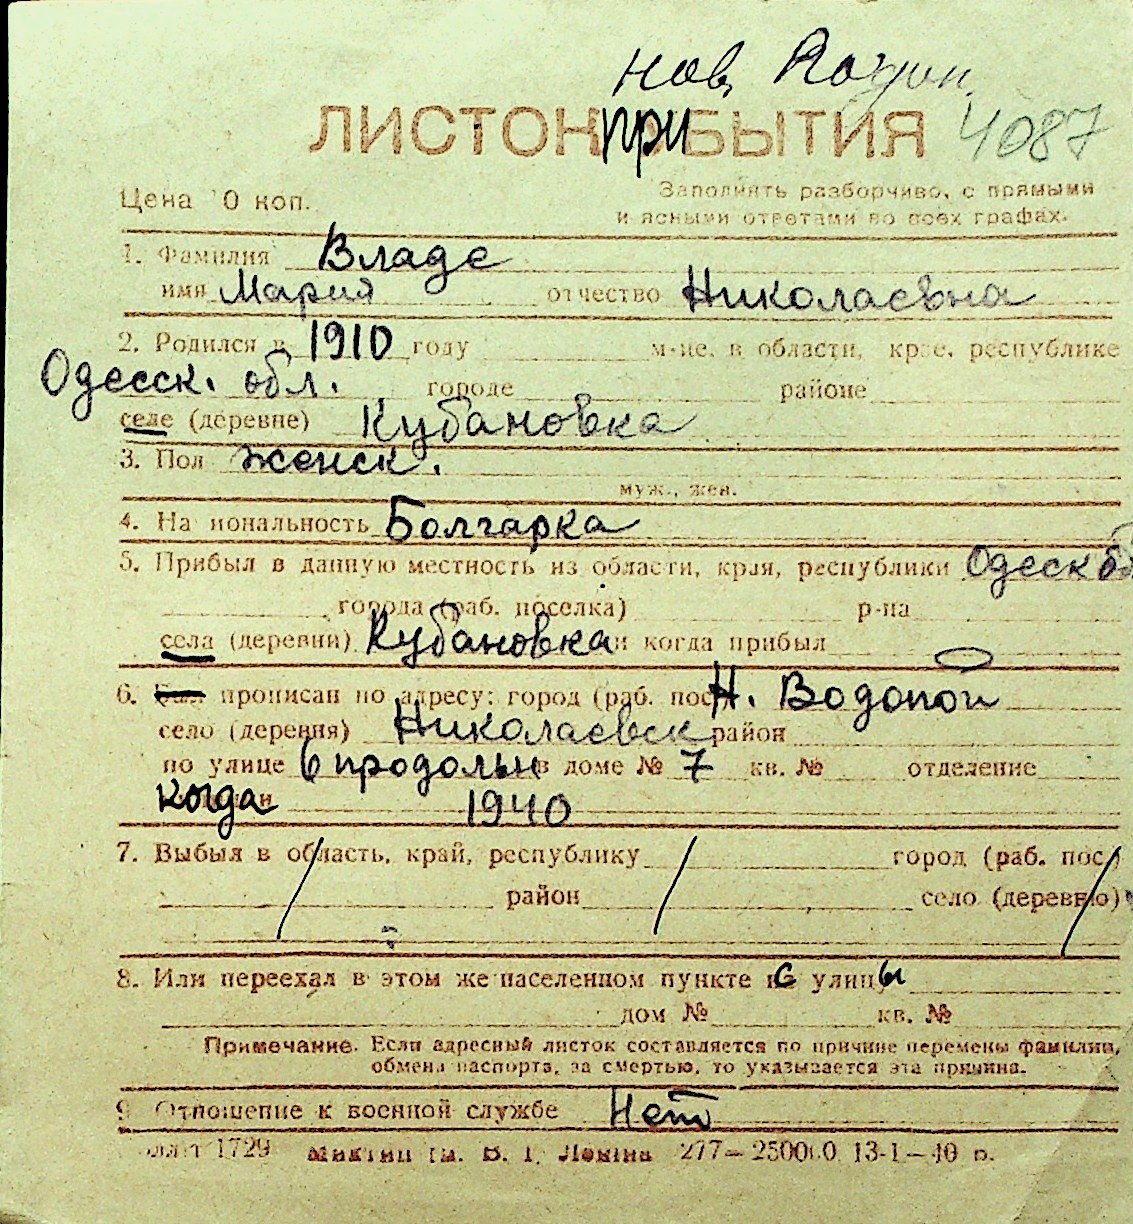 нов.
ЛИСТОК ПРИБЫТИЯ 4087
Цена 10 коп. Заполнять разборчиво, с прямыми
и ясными ответами во всех графах.
1. Фамилия Владе
имя Мария отчество Николаевна
2. Родился в 1910 году м-це, в области, крае, республике
Одесск. обл. городе районе
селе (деревне) Кубановка
3. Пол женск.
муж., жен.
4. На иональность Болгарка
5. Прибыл в данную местность из области, края, республики Одеск об
города (раб. поселка) р-на
села (деревни) Кубановка и когда прибыл
6. Был прописан по адресу: город (раб. пос Н. Водопой
село (деревня) Николаевск район
по улице 6 продольн в доме № 7 кв. № отделение
когда 1940
7. Выбыл в область, край, республику город (раб. пос.)
район село (деревню)
8. Или переехал в этом же населенном пункте с улицы
дом № кв. №
Примечание. Если адресный листок составляется по причине перемены фамилии,
обмена паспорта, за смертью, то указывается эта причина.
9 Отношение к военной службе Нет
1729 Ленина 277— 13-1—40 р.